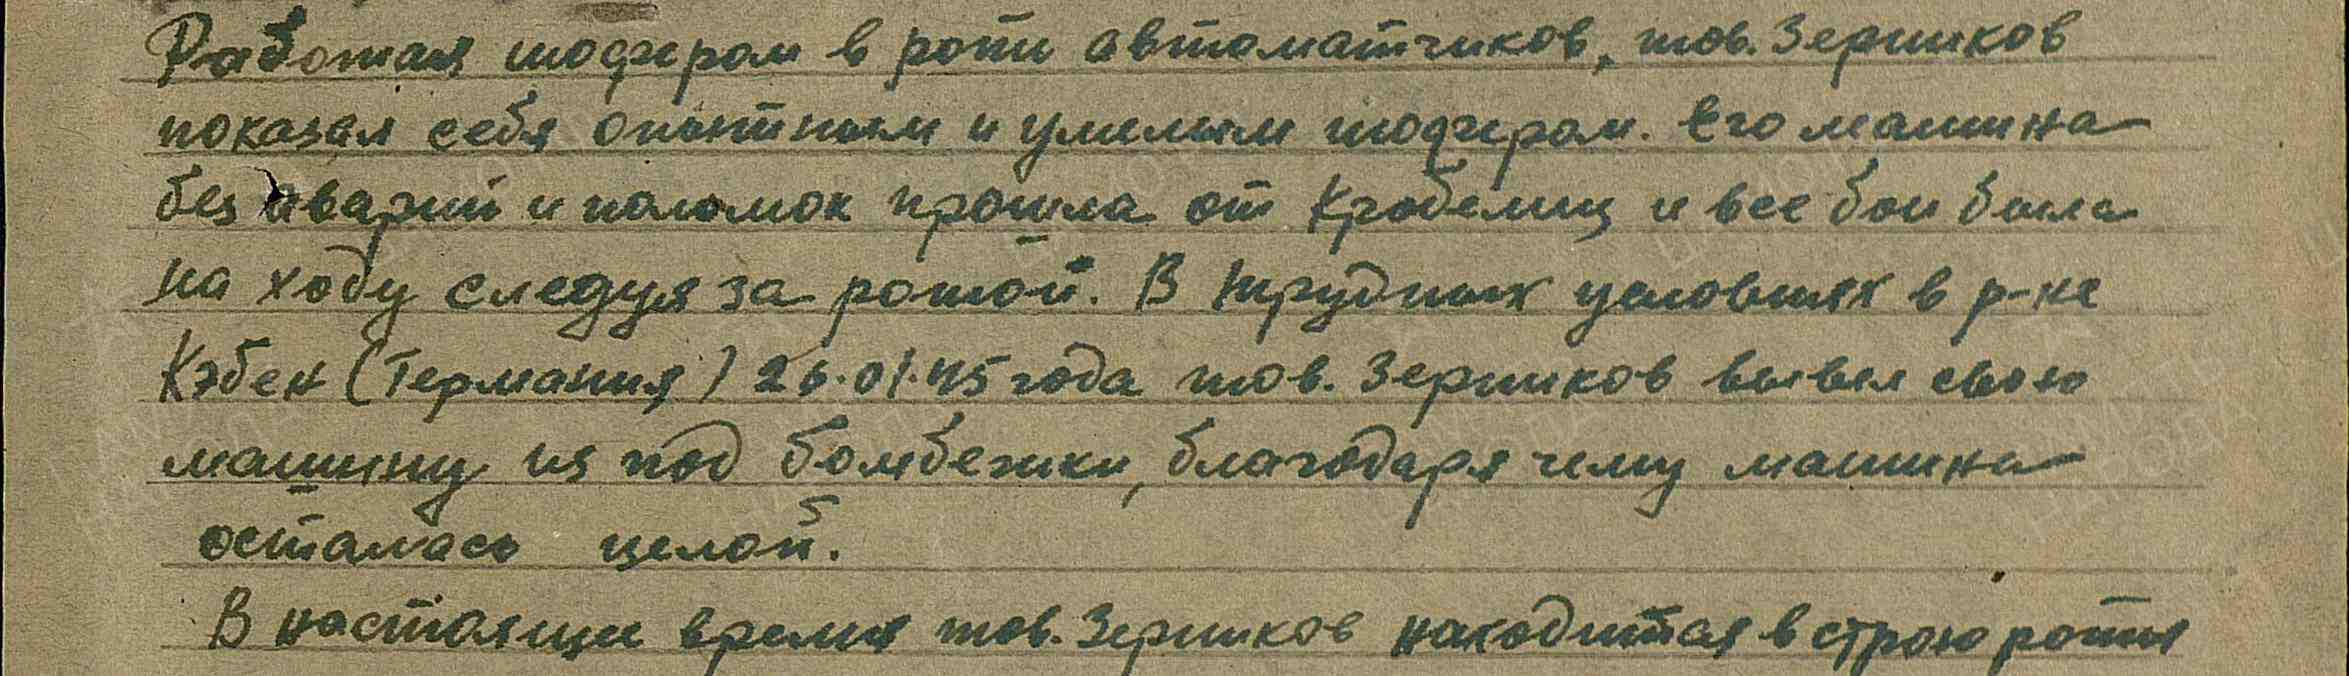 Работая шофером в роти автоматчиков, тов. Зерников
показал себя опытным и умелым шофером. Его машина
без аварий и поломок прошла от Кробелиц и все бои была
на ходу следуя за ротой. В трудных условиях в р-не
Кэбен (Германия) 26.01.45 года тов. Зерников вывел свою
машину из под бомбежки, благодаря чему машина
осталась целой.
В настоящие время тов. Зерников находится в строю роты